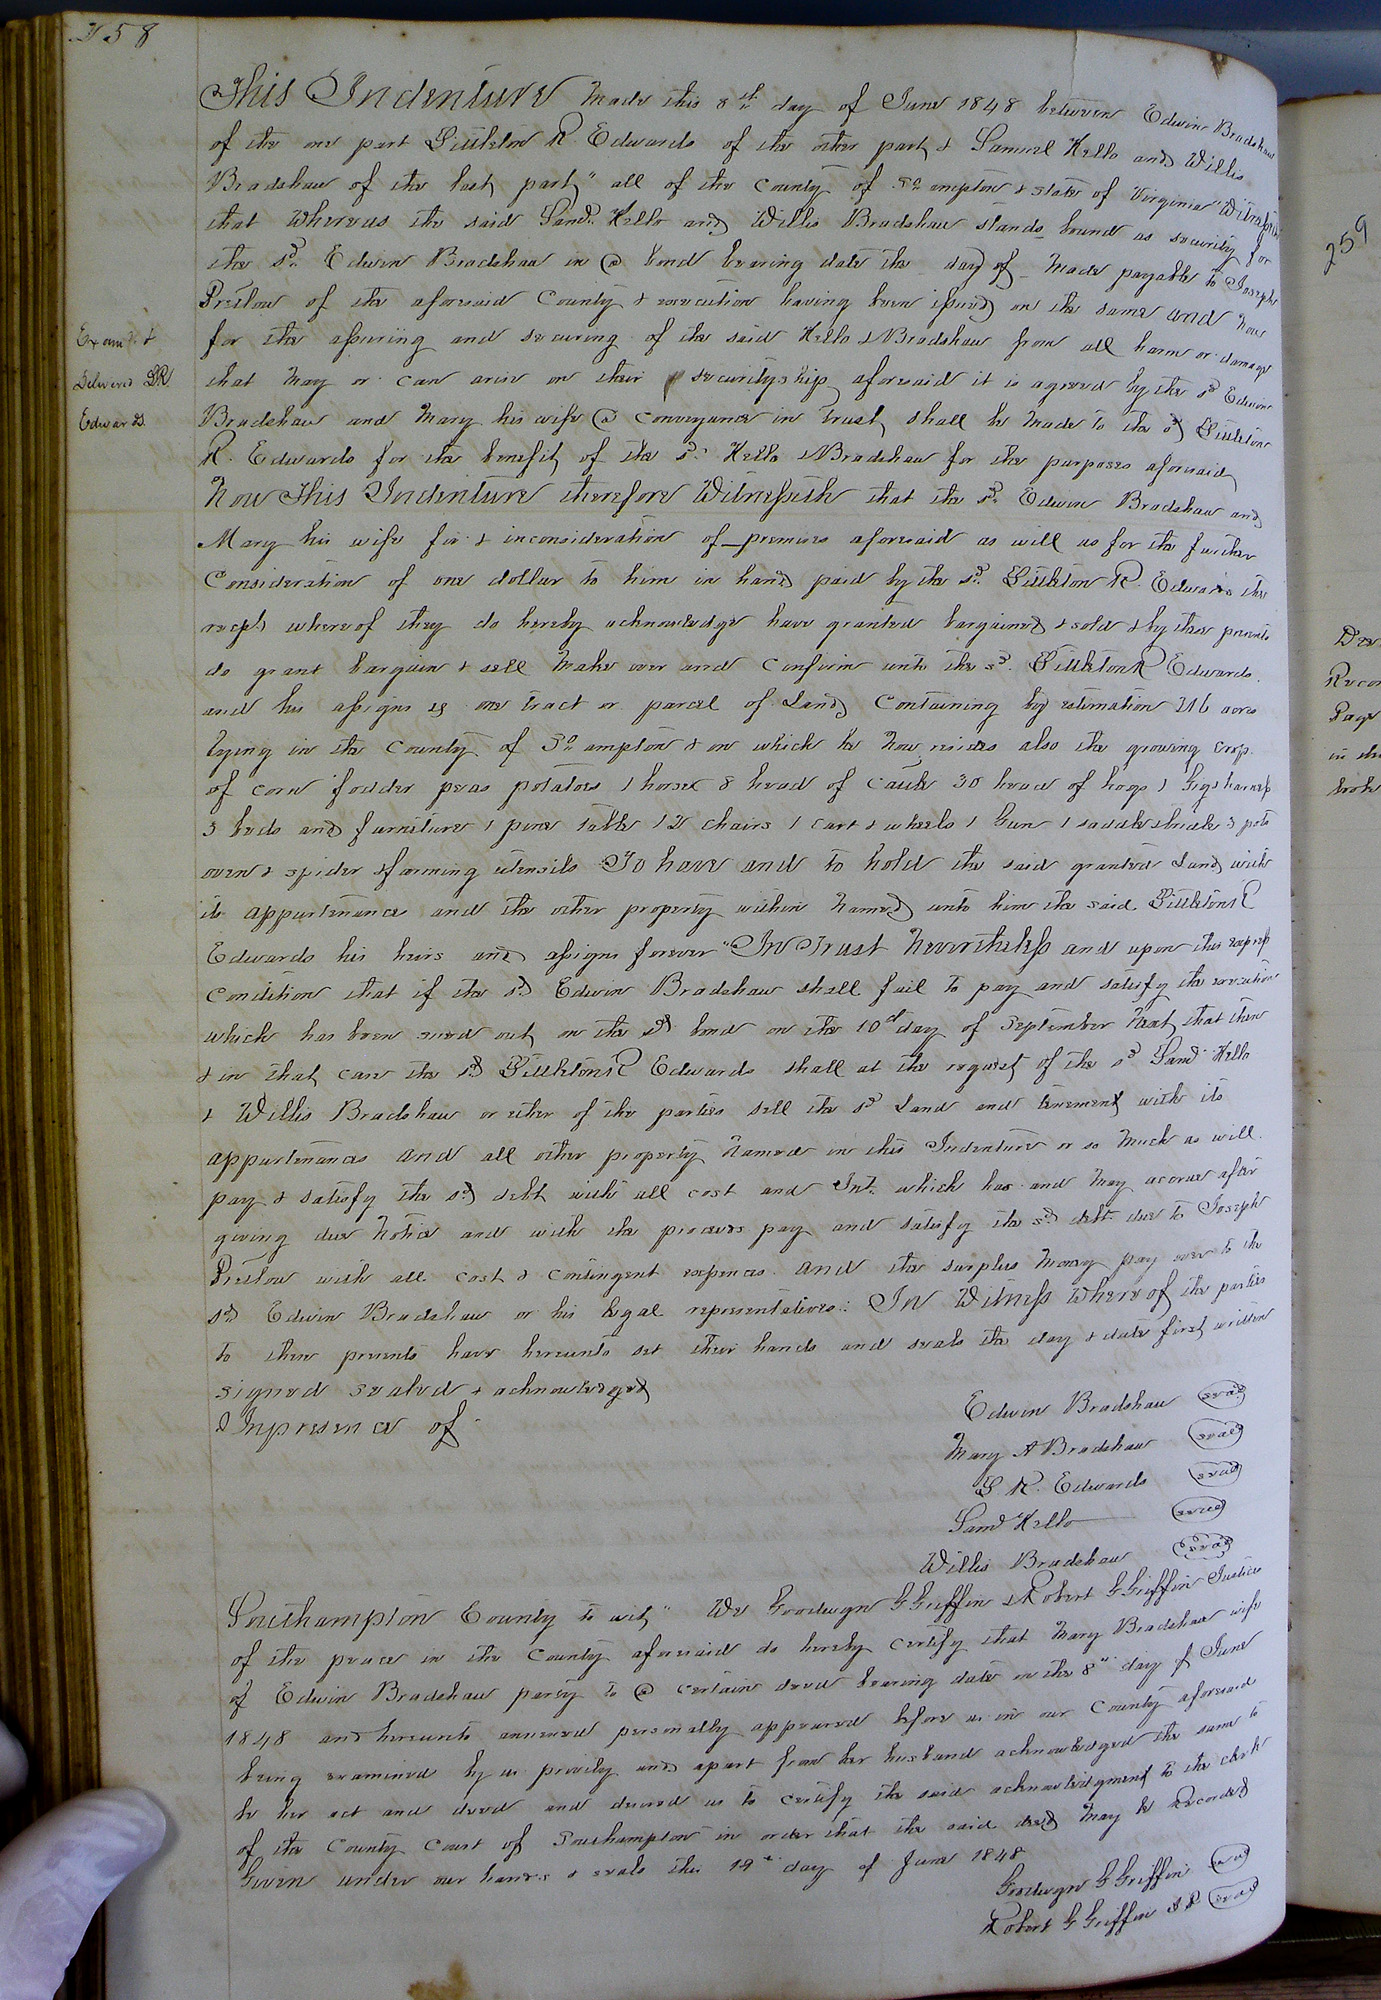 258
This Indenture Made this 8th day of June 1848 between Edwin Bradshaw
of the one part Littleton R. Edwards of the other part & Samuel Kello and Willis
Bradshaw of the last part" all of the County of So ampton & state of Virginia "Witnesseth
that Whereas the said Saml Kello and Willis Bradshaw stands bound as security for
the sd. Edwin Bradshaw in a bond bearing date the day of made payable to Joseph
Pretlow of the aforesaid County & execution having been issued on the same and now
for the assuring and securing of the said Kello & Bradshaw from all harm or damage
that May or can arise on their securityship aforesaid it is agreed by the sd Edwin
Bradshaw and Mary his wife a conveyance in trust shall be made to the sd Littleton
R. Edwards for the benefit of the sd. Kello & Bradshaw for the purposes aforesaid
Now This Indenture therefore Witnesseth that the sd. Edwin Bradshaw and
Mary his wife for & inconsideration of premises aforesaid as well as for the further
Consideration of one dollar to him in hand paid by the sd. Littleton R. Edwards the
recept whereof they do hereby acknowledge have granted bargained & sold & by these presents
do grant bargain & sell Make over and Confirm unto the sd. Littleton R Edwards
and his assigns one tract or parcel of Land Containing by estimation 216 acres
lying in the County of So ampton & on which he now resides also the growing crop
of corn fodder peas potatoes 1 horse 8 head of cattle 30 head of hogs 1 Gig & harness
3 beds and furniture 1 pine table 12 chairs 1 cart & wheels 1 Gun 1 saddle & bridle 3 pots
oven & spider & farming utensils To have and to hold the said granted Land with
its appurtenances and the other property within Named unto him the said Littleton R
Edwards his heirs and assigns forever "In Trust Nevertheless and upon this express
condition that if the sd Edwin Bradshaw shall fail to pay and satisfy the execution
which has been sued out on the sd bond on the 10th day of September Next that then
& in that case the sd Littleton R Edwards shall at the request of the sd Saml Kello
& Willis Bradshaw or either of the parties sell the sd Land and tenement with its
appurtenances and all other property Named in this Indenture or so Much as will
pay & satisfy the sd debt with all cost and Int. which has and May accrue after
giving due Notice and with the proceeds pay and satisfy the sd debt due to Joseph
Pretlow with all cost & contingent expences and the surplus Money pay over to the
sd Edwin Bradshaw or his legal representatives. In Witness Whereof the parties
to these presents have hereunto set their hands and seals the day & date first written
signed sealed & acknowledged
Inpresence of
Edwin Bradshaw seal
Mary A Bradshaw seal
L R. Edwards seal
Saml Kello seal
Willis Bradshaw seal
Southampton County to wit" We Goodwyn G Griffin & Robert G Griffin Justices
of the peace in the County aforesaid do hereby certify that Mary Bradshaw wife
of Edwin Bradshaw party to a certain deed bearing date on the 8th day of June
1848 and hereunto annexed personally appeared before us in our County aforesaid
being examined by us privily and apart from her husband acknowledged the same to
be her act and deed and desired us to certify the said acknowledgment to the clerk
of the County Court of Southampton in order that the said deed May be Recorded
Given under our hands & seals this 19th day of June 1848
Goodwyn G Griffin seal
Robert G Griffin seal
Examd. &
Delivered LR
Edwards.
259
Page
in the